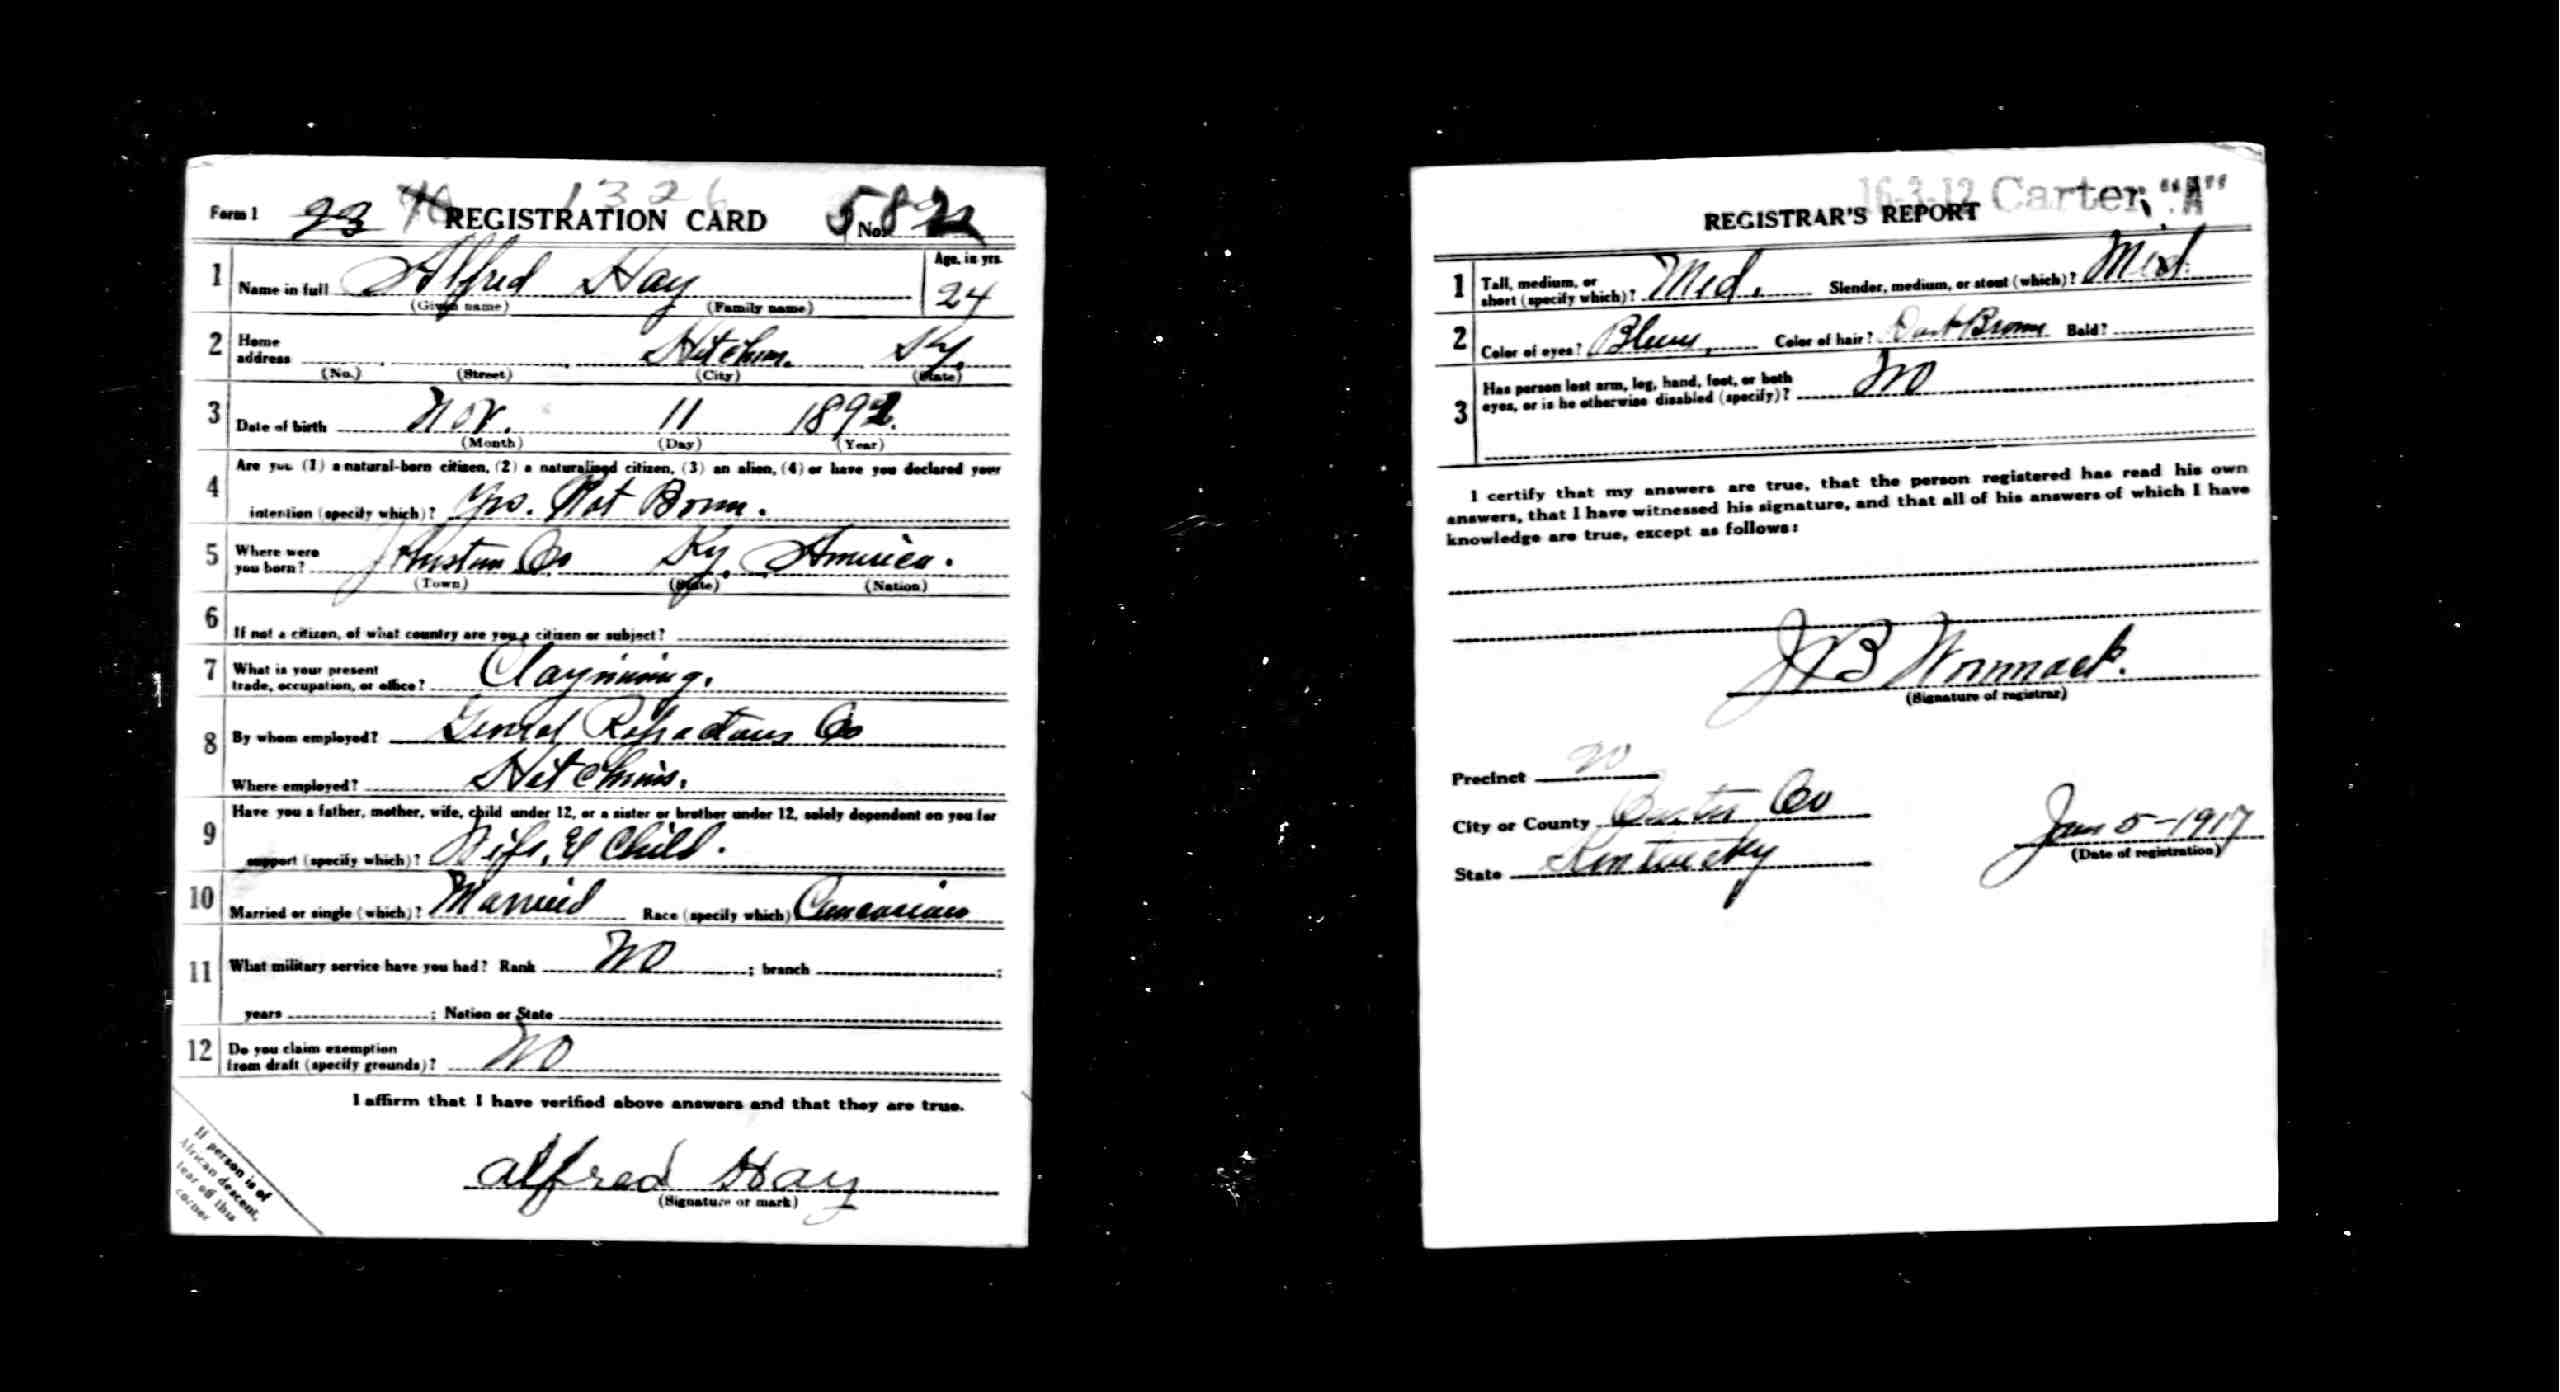 1326
Form 1 23 REGISTRATION CARD No. 58
1 Name in full Alfred Hay Age, in yrs. 24
(Given name) (Family name)
2 Home address Hitchins. Ky.
(No.) (Street) (City) (State)
3 Date of birth Nov. 11 1892.
(Month) (Day) (Year)
4 Are you (1) a natural-born citizen, (2) a naturalized citizen, (3) an alien, (4) or have you declared your
intention (specify which)? Yes. Nat Born.
5 Where were you born? Co Ky. America.
(Town) (State) (Nation)
6 If not a citizen, of what country are you a citizen or subject?
7 What is your present
trade, occupation, or office? Claymining.
8 By whom employed? General Refractories Co
Where employed? Hitchins.
9 Have you a father, mother, wife, child under 12, or a sister or brother under 12, solely dependent on you for
support (specify which)? Wife, & Child.
10 Married or single (which)? Married Race (specify which) Caucasian
11 What military service have you had? Rank No ; branch ;
years ; Nation or State
12 Do you claim exemption
from draft (specify grounds)? No
I affirm that I have verified above answers and that they are true.
Alfred Hay
(Signature or mark)
If person is of
African descent,
tear off this
corner
16-3-12 Carter, "A"
REGISTRAR'S REPORT
1 Tall, medium, or
short (specify which)? Med. Slender, medium, or stout (which)? Med.
2 Color of eyes? Blue Color of hair? Dark Brown Bald?
3 Has person lost arm, leg, hand, foot, or both
eyes, or is he otherwise disabled (specify)? No
I certify that my answers are true, that the person registered has read his own
answers, that I have witnessed his signature, and that all of his answers of which I have
knowledge are true, except as follows:
J B Wommack.
(Signature of registrar)
Precinct 20
City or County Carter Co
State Kentucky
Jun 5-1917
(Date of registration)